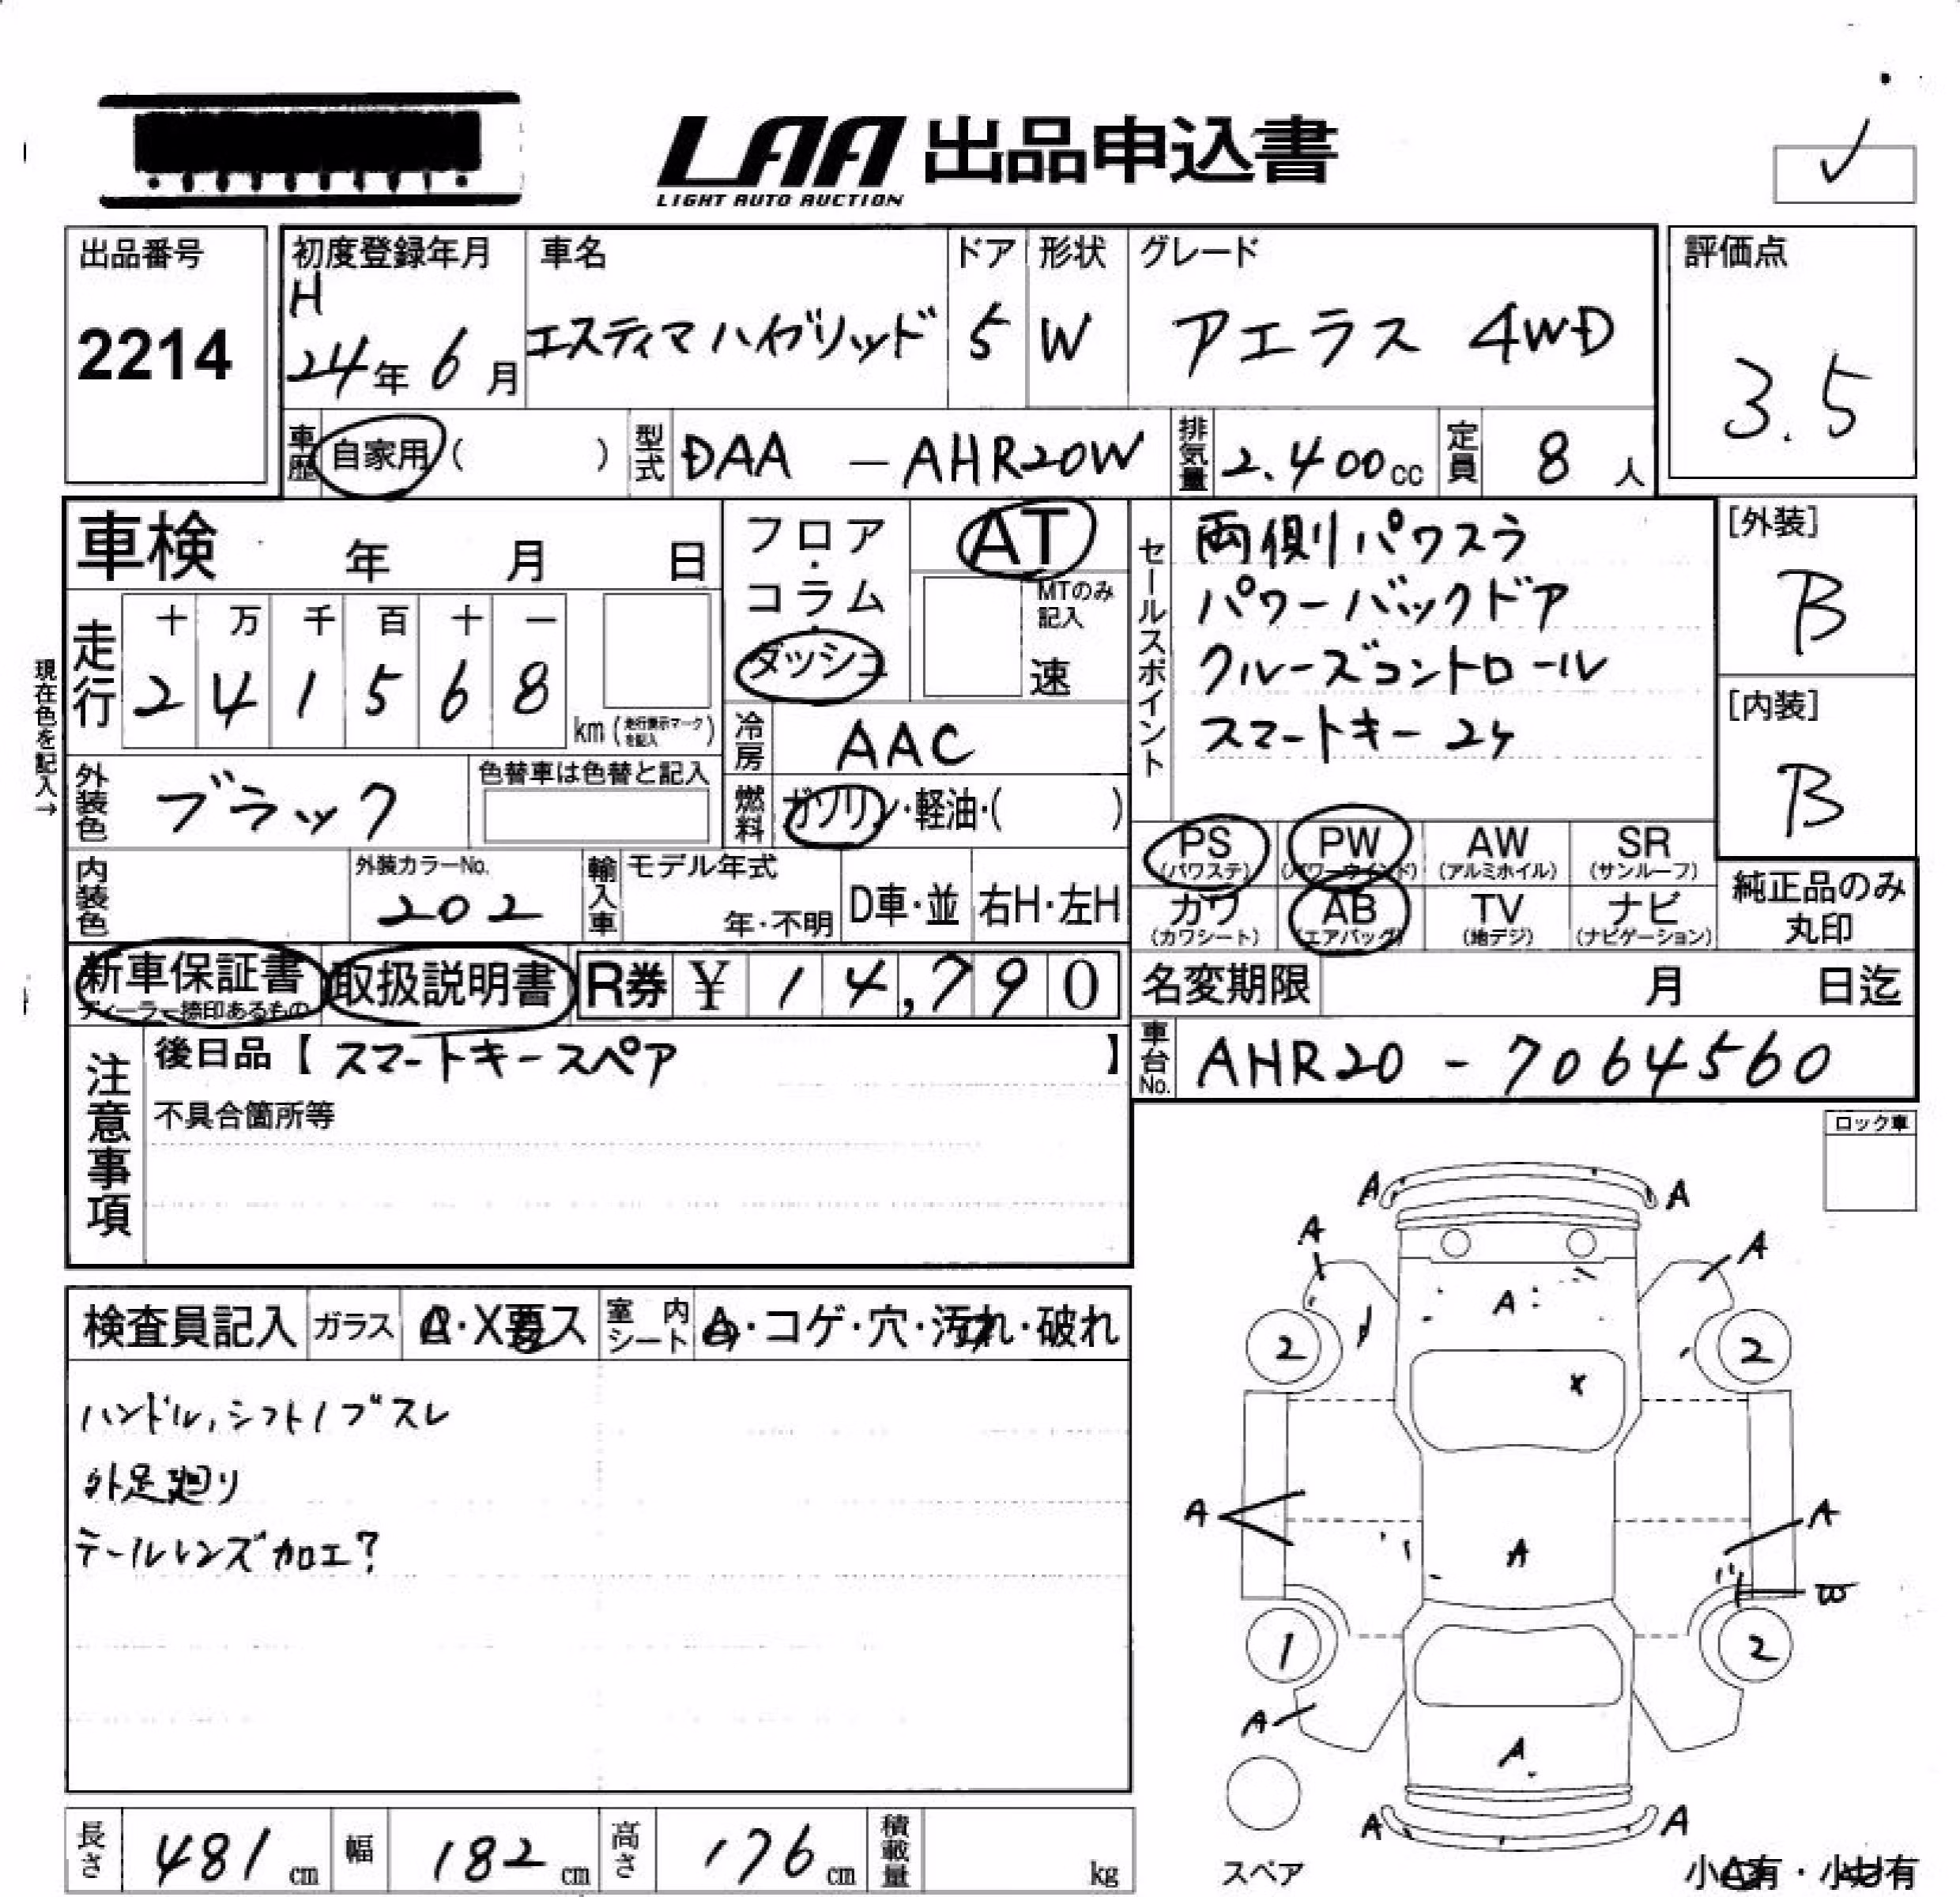 LAA 出品申込書
LIGHT AUTO AUCTION
出品番号
2214
初度登録年月
H
24年 6月
車名
エスティマハイブリッド
ドア
5
形状
W
グレード
アエラス 4WD
評価点
3.5
車歴 自家用 ( )
型式 DAA - AHR20W
排気量 2.400cc
定員 8 人
車検 年 月 日
フロア・コラム・ダッシュ
AT
MTのみ記入
速
セールスポイント
両側パワスラ
パワーバックドア
クルーズコントロール
スマートキー 2ケ
[外装]
B
[内装]
B
現在色を記入→
走行
十 万 千 百 十 一
2 4 1 5 6 8
km (走行表示マークを記入)
冷房 AAC
外装色 ブラック
色替車は色替と記入
燃料 ガソリン・軽油・( )
PS (パワステ)
PW (パワーウインド)
AW (アルミホイル)
SR (サンルーフ)
カワ (カワシート)
AB (エアバッグ)
TV (地デジ)
ナビ (ナビゲーション)
純正品のみ丸印
内装色
外装カラーNo.
202
輸入車
モデル年式
年・不明
D車・並
右H・左H
新車保証書
ディーラー捺印あるもの
取扱説明書
R券 ¥ 14,790
名変期限 月 日迄
注意事項
後日品【 スマートキースペア 】
不具合箇所等
車台No. AHR20 - 7064560
ロック車
検査員記入
ガラス
X要ス
室内シート
・コゲ・穴・汚れ・破れ
ハンドル,シフトノブスレ
外足廻り
テールレンズ加工?
A A
A A
A
2 2
X
A A
A
W
1 2
A
A
A A
スペア
小A有・小U有
長さ 481 cm
幅 182 cm
高さ 176 cm
積載量 kg